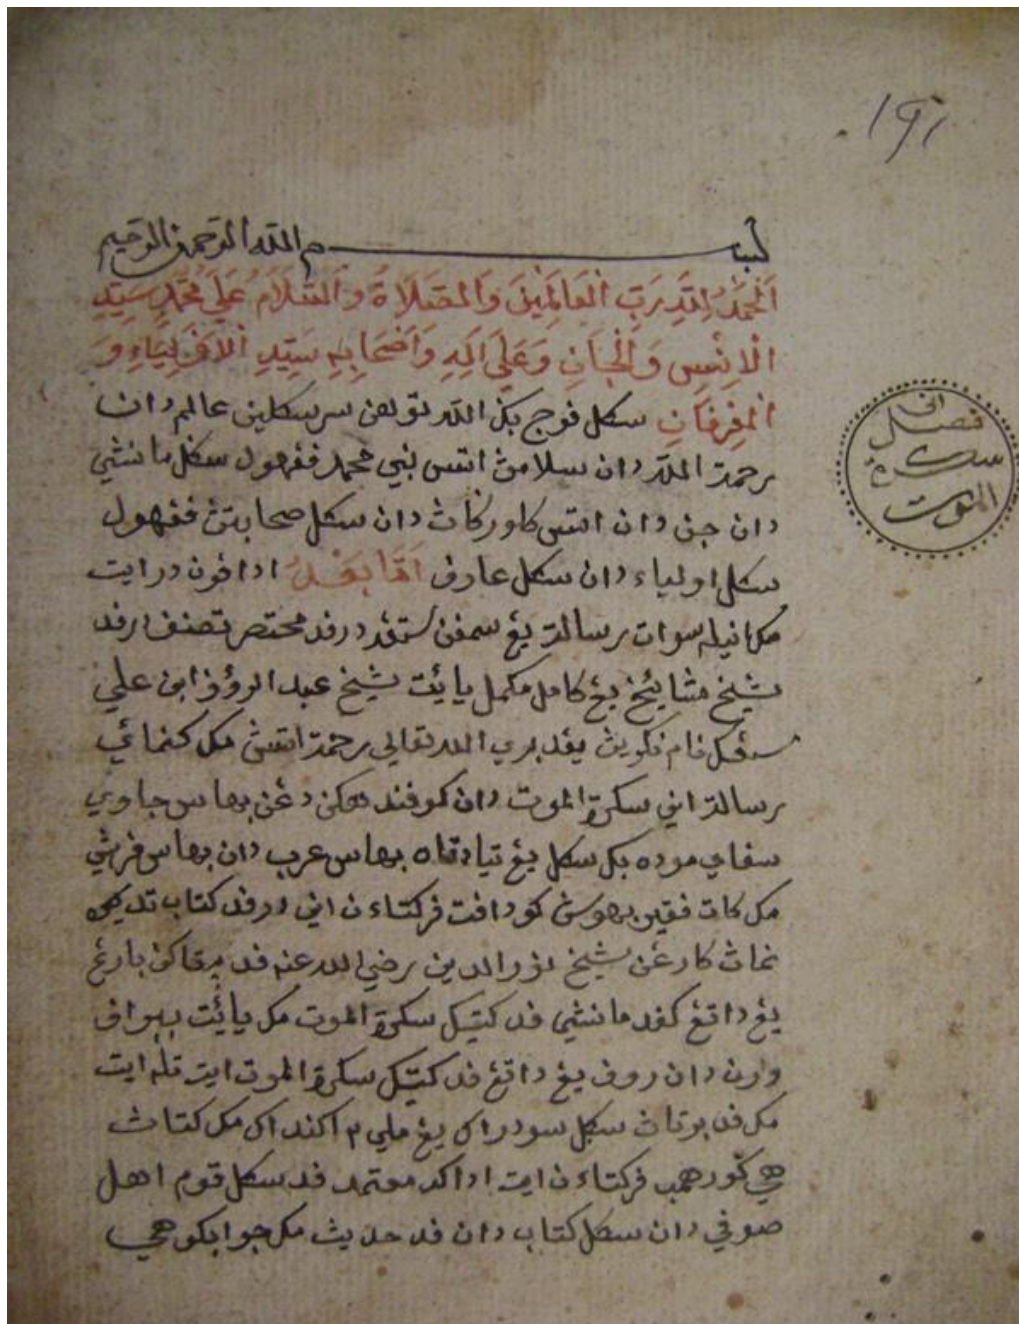 ١٩١
بسم الله الرحمن الرحيم
اَلْحَمْدُ لِلّٰهِ رَبِّ الْعَالَمِيْنَ وَالصَّلَاةُ وَالسَّلَامُ عَلَى مُحَمَّدٍ سَيِّدِ
الْاِنْسِ وَالْجَانِ وَعَلَى اٰلِهِ وَاَصْحَابِهِ سَيِّدِ الْاَوْلِيَاءِ وَ
الْعِرْفَانِ سكل فوج بكي الله توهن سرسكلين عالم دان
رحمة الله دان سلامڽ اتس نبي محمد ڤڠهول سكل مانسي
دان جن دان اتس كلوركاڽ دان سكل صحابتڽ ڤڠهول
سكل اولياء دان سكل عارف اَمَّا بَعْدُ اداڤون درايت
مك انيله سوات رسالة يڠ سمڤن لڬي مختصر تصنف درڤد
شيخ مشايخ يڠ كامل مكمل يائت شيخ عبد الرؤف ابن علي
يڠد بري الله تعالى رحمة اتسڽ مك كنمائي
رسالة اني سكرة الموت دان كوڤندهكن دڠن بهاس جاوي
سڤاي موده بكي سكل يڠ تياد تاه بهاس عرب دان بهاس فرسي
مك كات ڤقير بهوسڽ كوداڤت ڤركتاءن اني درڤد كتاب تذكره
نماڽ كارڠن شيخ نورالدين رضي الله عنه ڤد مڽتاكن بارڠ
يڠ داتڠ كڤد مانسي ڤد كتيك سكرة الموت مك يائت ببراڤ
ورن دان روڤ يڠ داتڠ ڤد كتيك سكرة الموت ايت تله ايت
مك ڤد برتاڽ سكل سودراك يڠ ملي٢ اكنداك مك كتاڽ
هي ڬورو همب ڤركتاءن ايت اداكه معتمد ڤد سكل قوم اهل
صوفي دان سكل كتاب دان ڤد حديث مك جوابكو هي
انى
فصل
سكرة
الموت